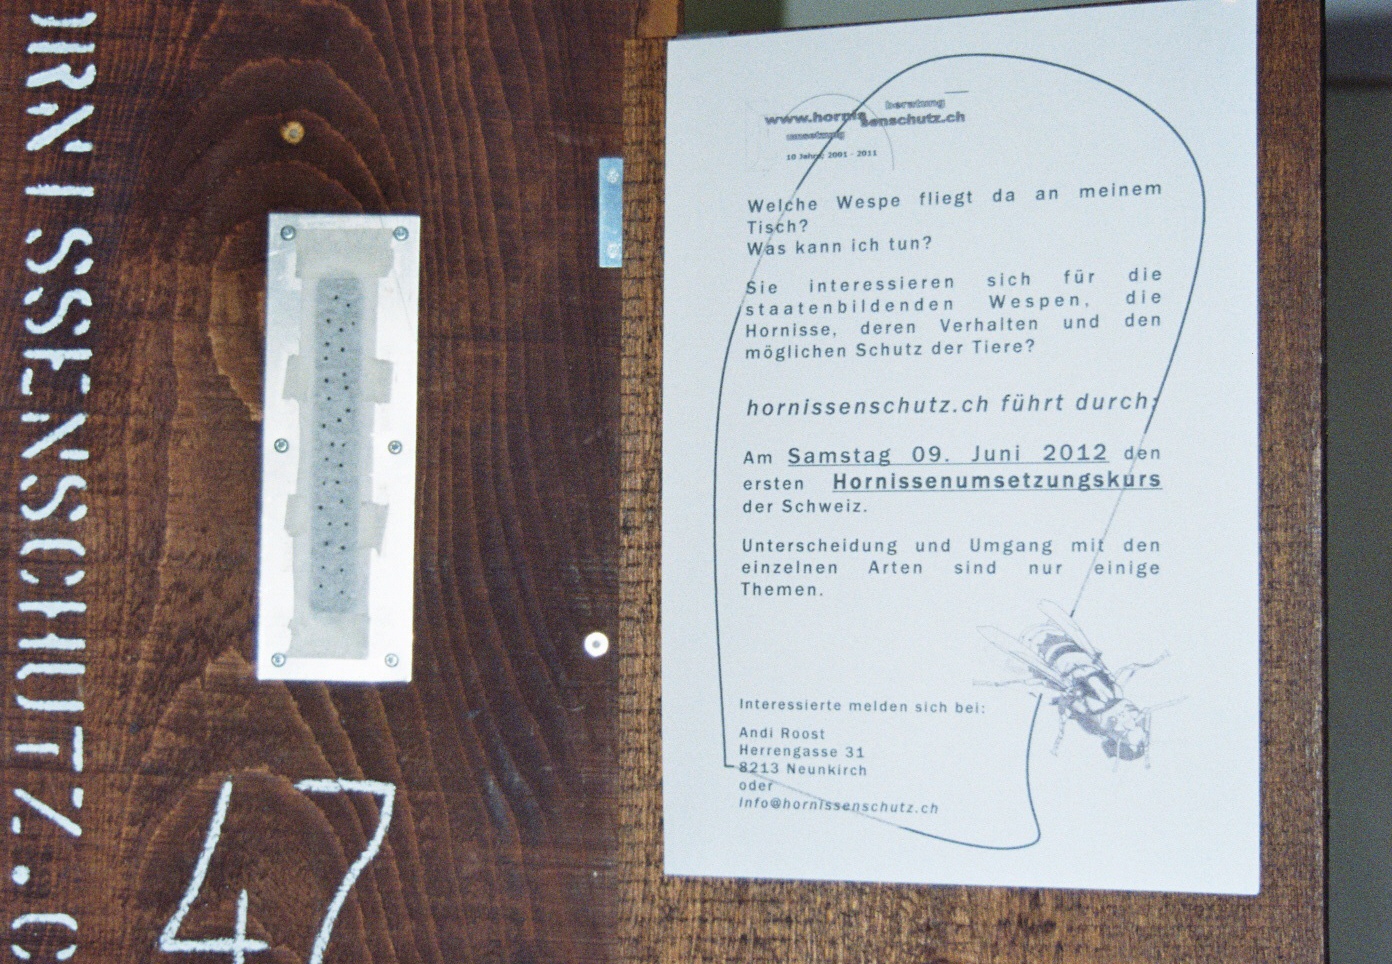 ORNISSENSCHUTZ.C
47
beratung
www.hornissenschutz.ch
umsetzung
10 Jahre 2001 - 2011
Welche Wespe fliegt da an meinem
Tisch?
Was kann ich tun?
Sie interessieren sich für die
staatenbildenden Wespen, die
Hornisse, deren Verhalten und den
möglichen Schutz der Tiere?
hornissenschutz.ch führt durch:
Am Samstag 09. Juni 2012 den
ersten Hornissenumsetzungskurs
der Schweiz.
Unterscheidung und Umgang mit den
einzelnen Arten sind nur einige
Themen.
Interessierte melden sich bei:
Andi Roost
Herrengasse 31
8213 Neunkirch
oder
info@hornissenschutz.ch